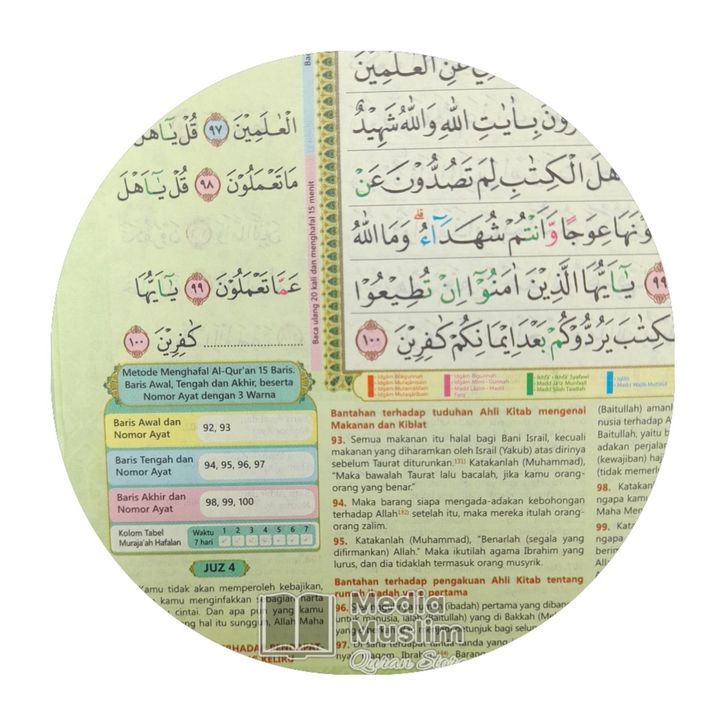 الْعٰلَمِيْنَ ٩٧ قُلْ يٰٓاَهْلَ
مَا تَعْمَلُوْنَ ٩٨ قُلْ يٰٓاَهْلَ
عَمَّا تَعْمَلُوْنَ ٩٩ يٰٓاَيُّهَا
......................... كٰفِرِيْنَ ١٠٠
Baca ulang 20 kali dan menghafal 15 menit
عَنِ الْعٰلَمِيْنَ
بِاٰيٰتِ اللّٰهِ وَاللّٰهُ شَهِيْدٌ
الْكِتٰبِ لِمَ تَصُدُّوْنَ عَنْ
عِوَجًا وَّاَنْتُمْ شُهَدَاۤءُۗ وَمَا اللّٰهُ
٩٩ يٰٓاَيُّهَا الَّذِيْنَ اٰمَنُوْٓا اِنْ تُطِيْعُوْا
يَرُدُّوْكُمْ بَعْدَ اِيْمَانِكُمْ كٰفِرِيْنَ ١٠٠
Metode Menghafal Al-Qur'an 15 Baris.
Baris Awal, Tengah dan Akhir, beserta
Nomor Ayat dengan 3 Warna
Baris Awal dan
Nomor Ayat
92, 93
Baris Tengah dan
Nomor Ayat
94, 95, 96, 97
Baris Akhir dan
Nomor Ayat
98, 99, 100
Kolom Tabel
Muraja'ah Hafalan
Waktu
7 hari
1 2 3 4 5 6 7
JUZ 4
Kamu tidak akan memperoleh kebajikan,
kamu menginfakkan sebagian harta
cintai. Dan apa pun yang kamu
hal itu sungguh, Allah Maha
KELIRU
Bantahan terhadap tuduhan Ahli Kitab mengenai
Makanan dan Kiblat
93. Semua makanan itu halal bagi Bani Israil, kecuali
makanan yang diharamkan oleh Israil (Yakub) atas dirinya
sebelum Taurat diturunkan. Katakanlah (Muhammad),
"Maka bawalah Taurat lalu bacalah, jika kamu orang-
orang yang benar."
94. Maka barang siapa mengada-adakan kebohongan
terhadap Allah setelah itu, maka mereka itulah orang-
orang zalim.
95. Katakanlah (Muhammad), "Benarlah (segala yang
difirmankan) Allah." Maka ikutilah agama Ibrahim yang
lurus, dan dia tidaklah termasuk orang musyrik.
Bantahan terhadap pengakuan Ahli Kitab tentang
rumah ibadah yang pertama
96. (ibadah) pertama yang
manusia, ialah (Baitullah) yang di Bakkah
97.
(Baitullah)
nusia terhadap
Baitullah, yaitu
adakan
(kewajiban) haji
(tidak
98.
ngapa kamu
Maha
99.
ngapa
Media
Muslim
Quran Store